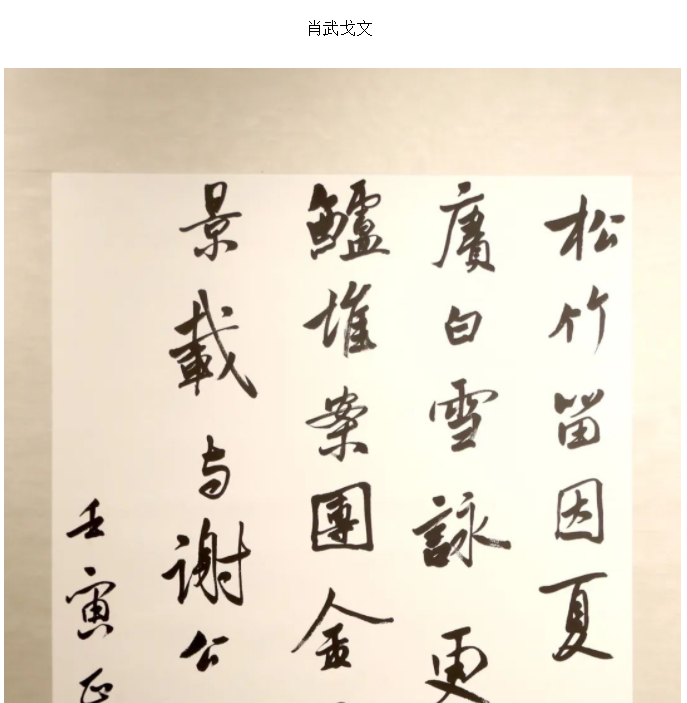 肖武戈文
松竹留因夏
賡白雪詠更
鱸堆案團金
景載与謝公
壬寅